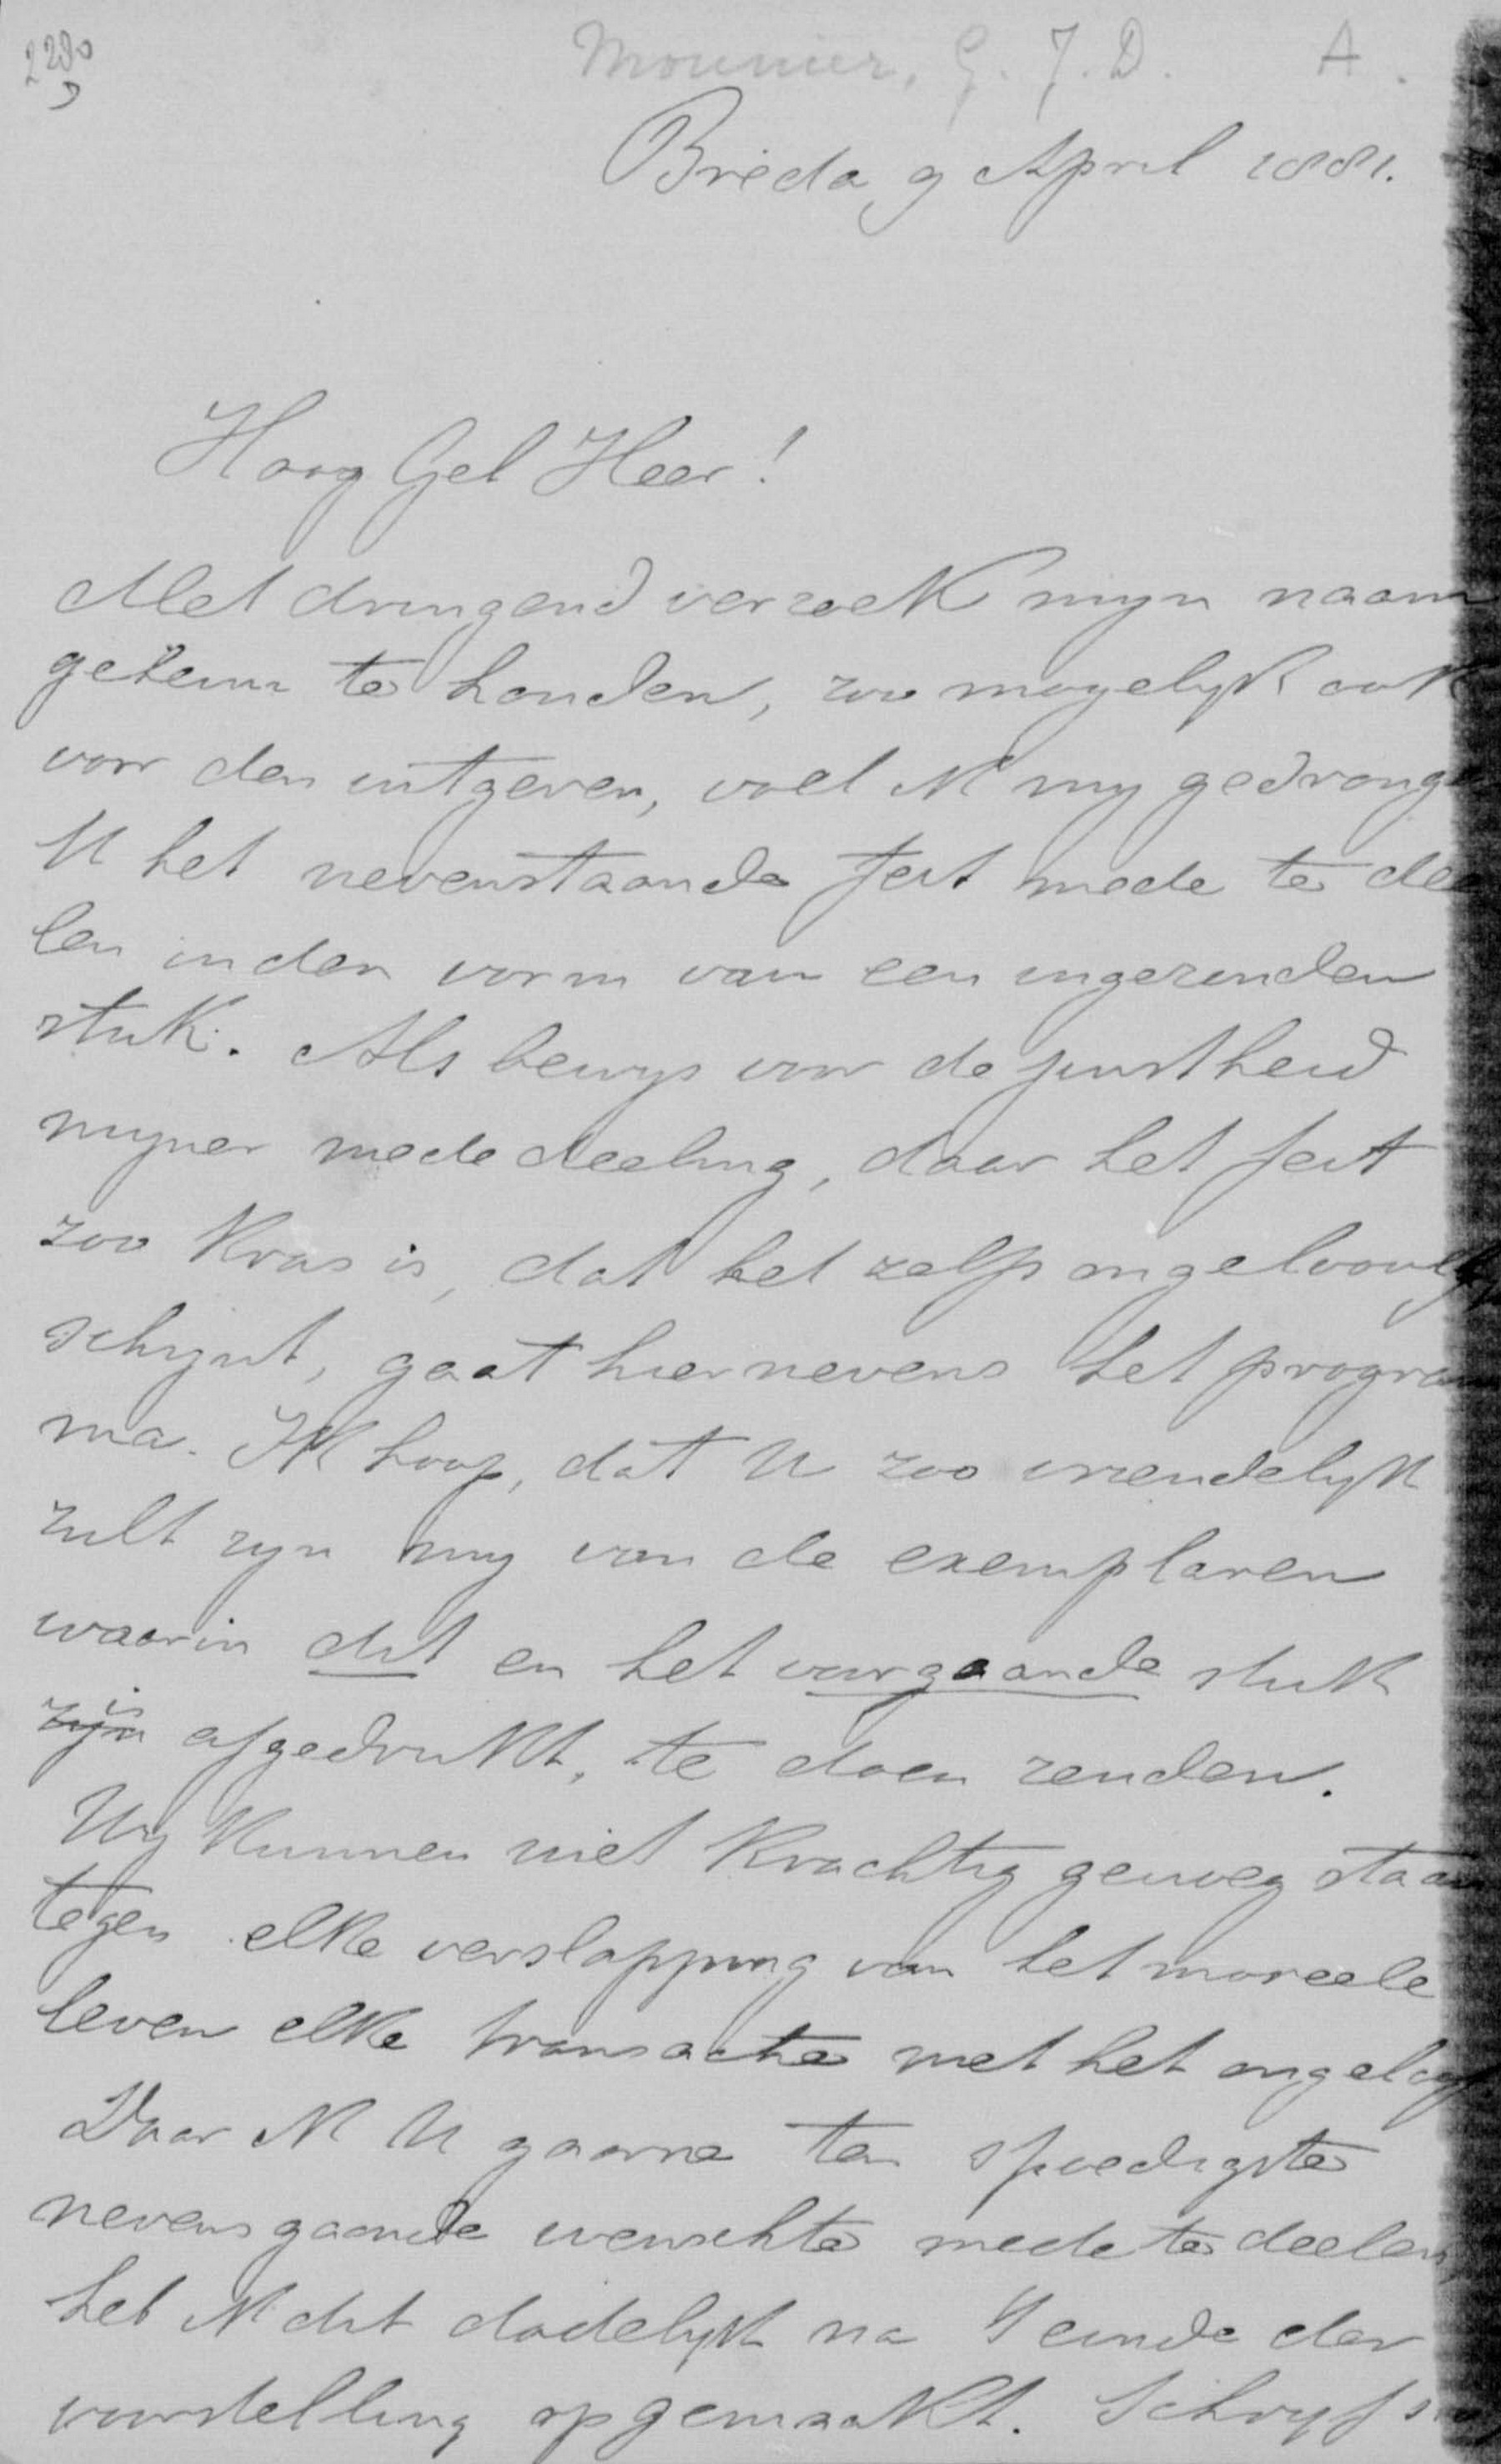 2280
Mounier, G. J. D. A.
Breda 9 April 1881.
Hoog Gel Heer!
Met dringend verzoek mijn naam
geheim te houden, zoo mogelyk ook
voor den uitgever, voel ik my gedronge
U het nevenstaande feit mede te dee
len in den vorm van een ingezonden
stuk. Als bewys voor de juistheid
myner mededeeling, daar het feit
zoo kras is, dat het zelfs ongeloovelyk
schynt, gaat hiernevens het progra
ma. Ik hoop, dat U zoo vriendelyk
zult zyn my van de exemplaren
waarin dit en het voorgaande stuk
zijn is afgedrukt, te doen zenden.
Wy kunnen niet krachtig genoeg staan
tegen elke verslapping van het moreele
leven elke transactie met het ongeloof
Daar ik U gaarne ten spoedigste
nevensgaande wenschte mede te deelen,
heb ik dit dadelyk na 't einde der
voorstelling opgemaakt. Schryf